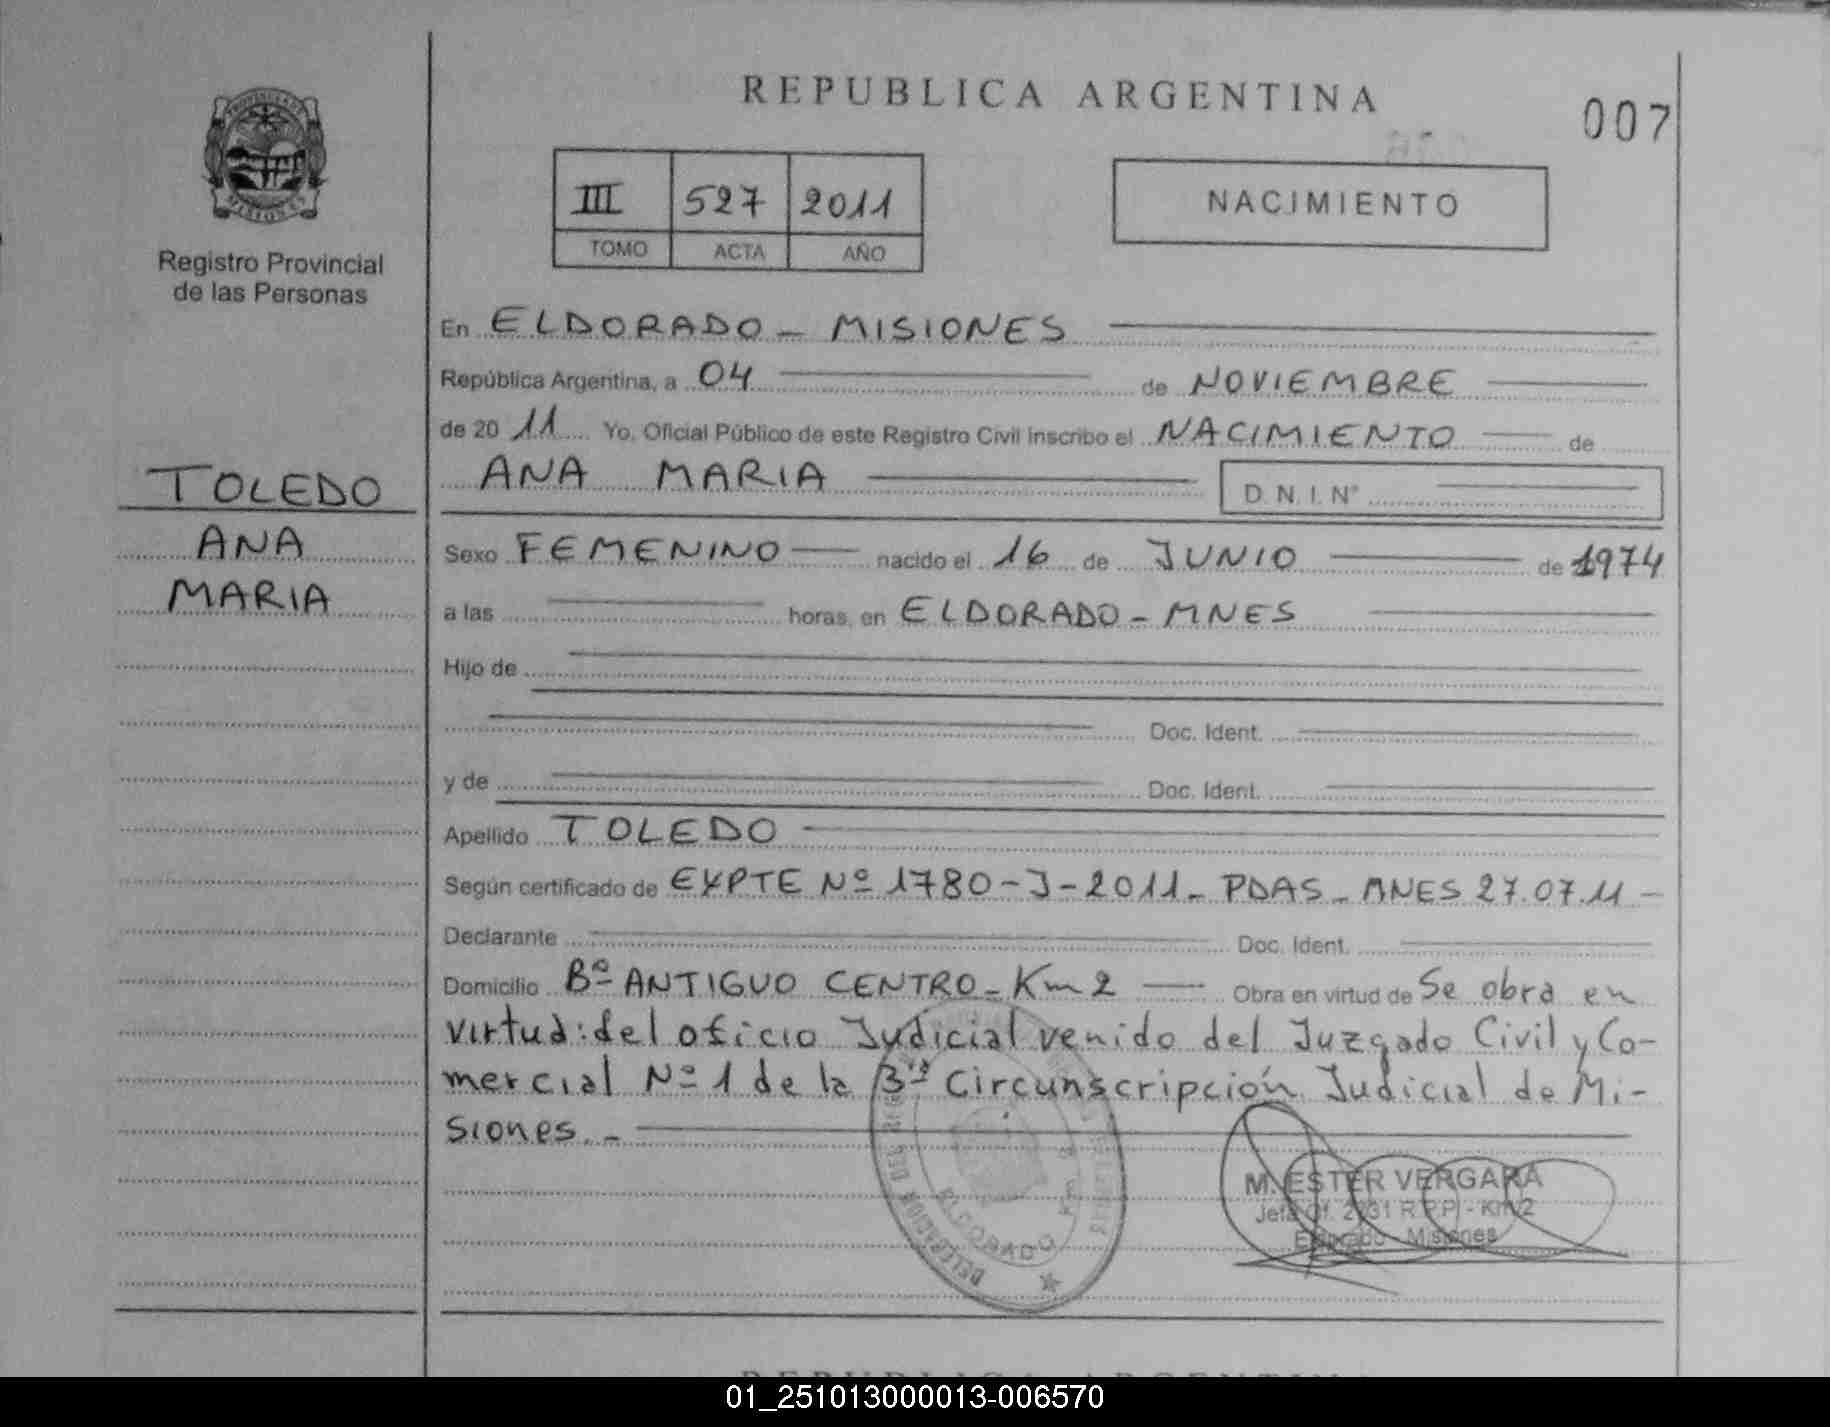 REPUBLICA ARGENTINA
007
PROVINCIA DE
MISIONES
Registro Provincial
de las Personas
III 527 2011
TOMO ACTA AÑO
NACIMIENTO
En ELDORADO - MISIONES
República Argentina, a 04 de NOVIEMBRE
de 2011 Yo, Oficial Público de este Registro Civil inscribo el NACIMIENTO de
TOLEDO
ANA MARIA D. N. I. N°
ANA
Sexo FEMENINO nacido el 16 de JUNIO de 1974
MARIA
a las horas, en ELDORADO - MNES
Hijo de
Doc. Ident.
y de Doc. Ident.
Apellido TOLEDO
Según certificado de EXPTE Nº 1780-J-2011- PDAS - MNES 27.07.11 -
Declarante Doc. Ident.
Domicilio Bº ANTIGUO CENTRO - Km 2 Obra en virtud de Se obra en
virtud: del oficio Judicial venido del Juzgado Civil y Co-
mercial Nº 1 de la 3ra Circunscripción Judicial de Mi-
siones. -
DELEGACION DEL
ELDORADO Km 2
M. ESTER VERGARA
Jefa Of. 2231 R.P.P. - Km 2
Eldorado - Misiones
REPUBLICA ARGENTINA
01_251013000013-006570